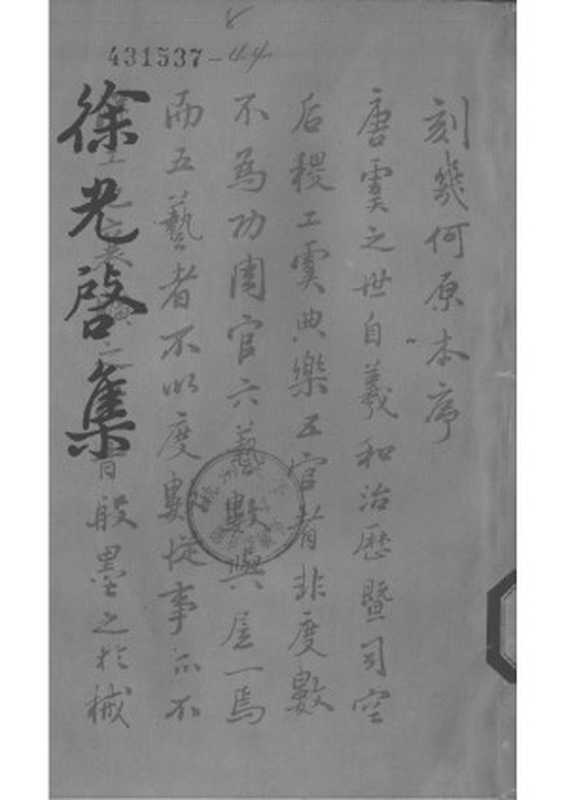 431537-44
徐光啓集
刻幾何原本序
唐虞之世自羲和治歷暨司空
后稷工虞典樂五官者非度數
不為功周官六藝數與居一焉
而五藝者不以度數從事亦不
般墨之於械